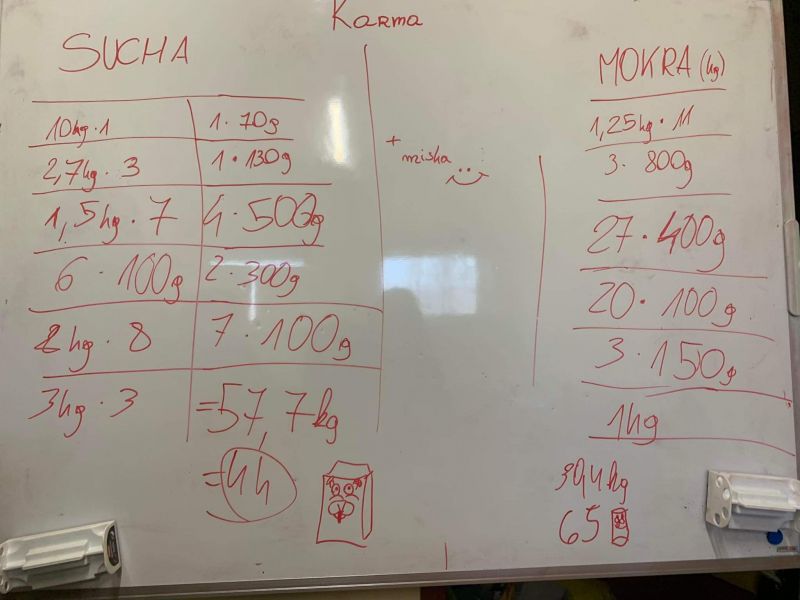 Karma
SUCHA
10kg · 1
1 · 70g
2,7kg · 3
1 · 130g
1,5kg · 7
4 · 500g
6 · 100g
2 · 300g
2 kg · 8
7 · 100g
3kg · 3
=57,7kg
=44
+ miska
MOKRA (kg)
1,25kg · 11
3 · 800g
27 · 400g
20 · 100g
3 · 150g
1kg
30,4kg
65